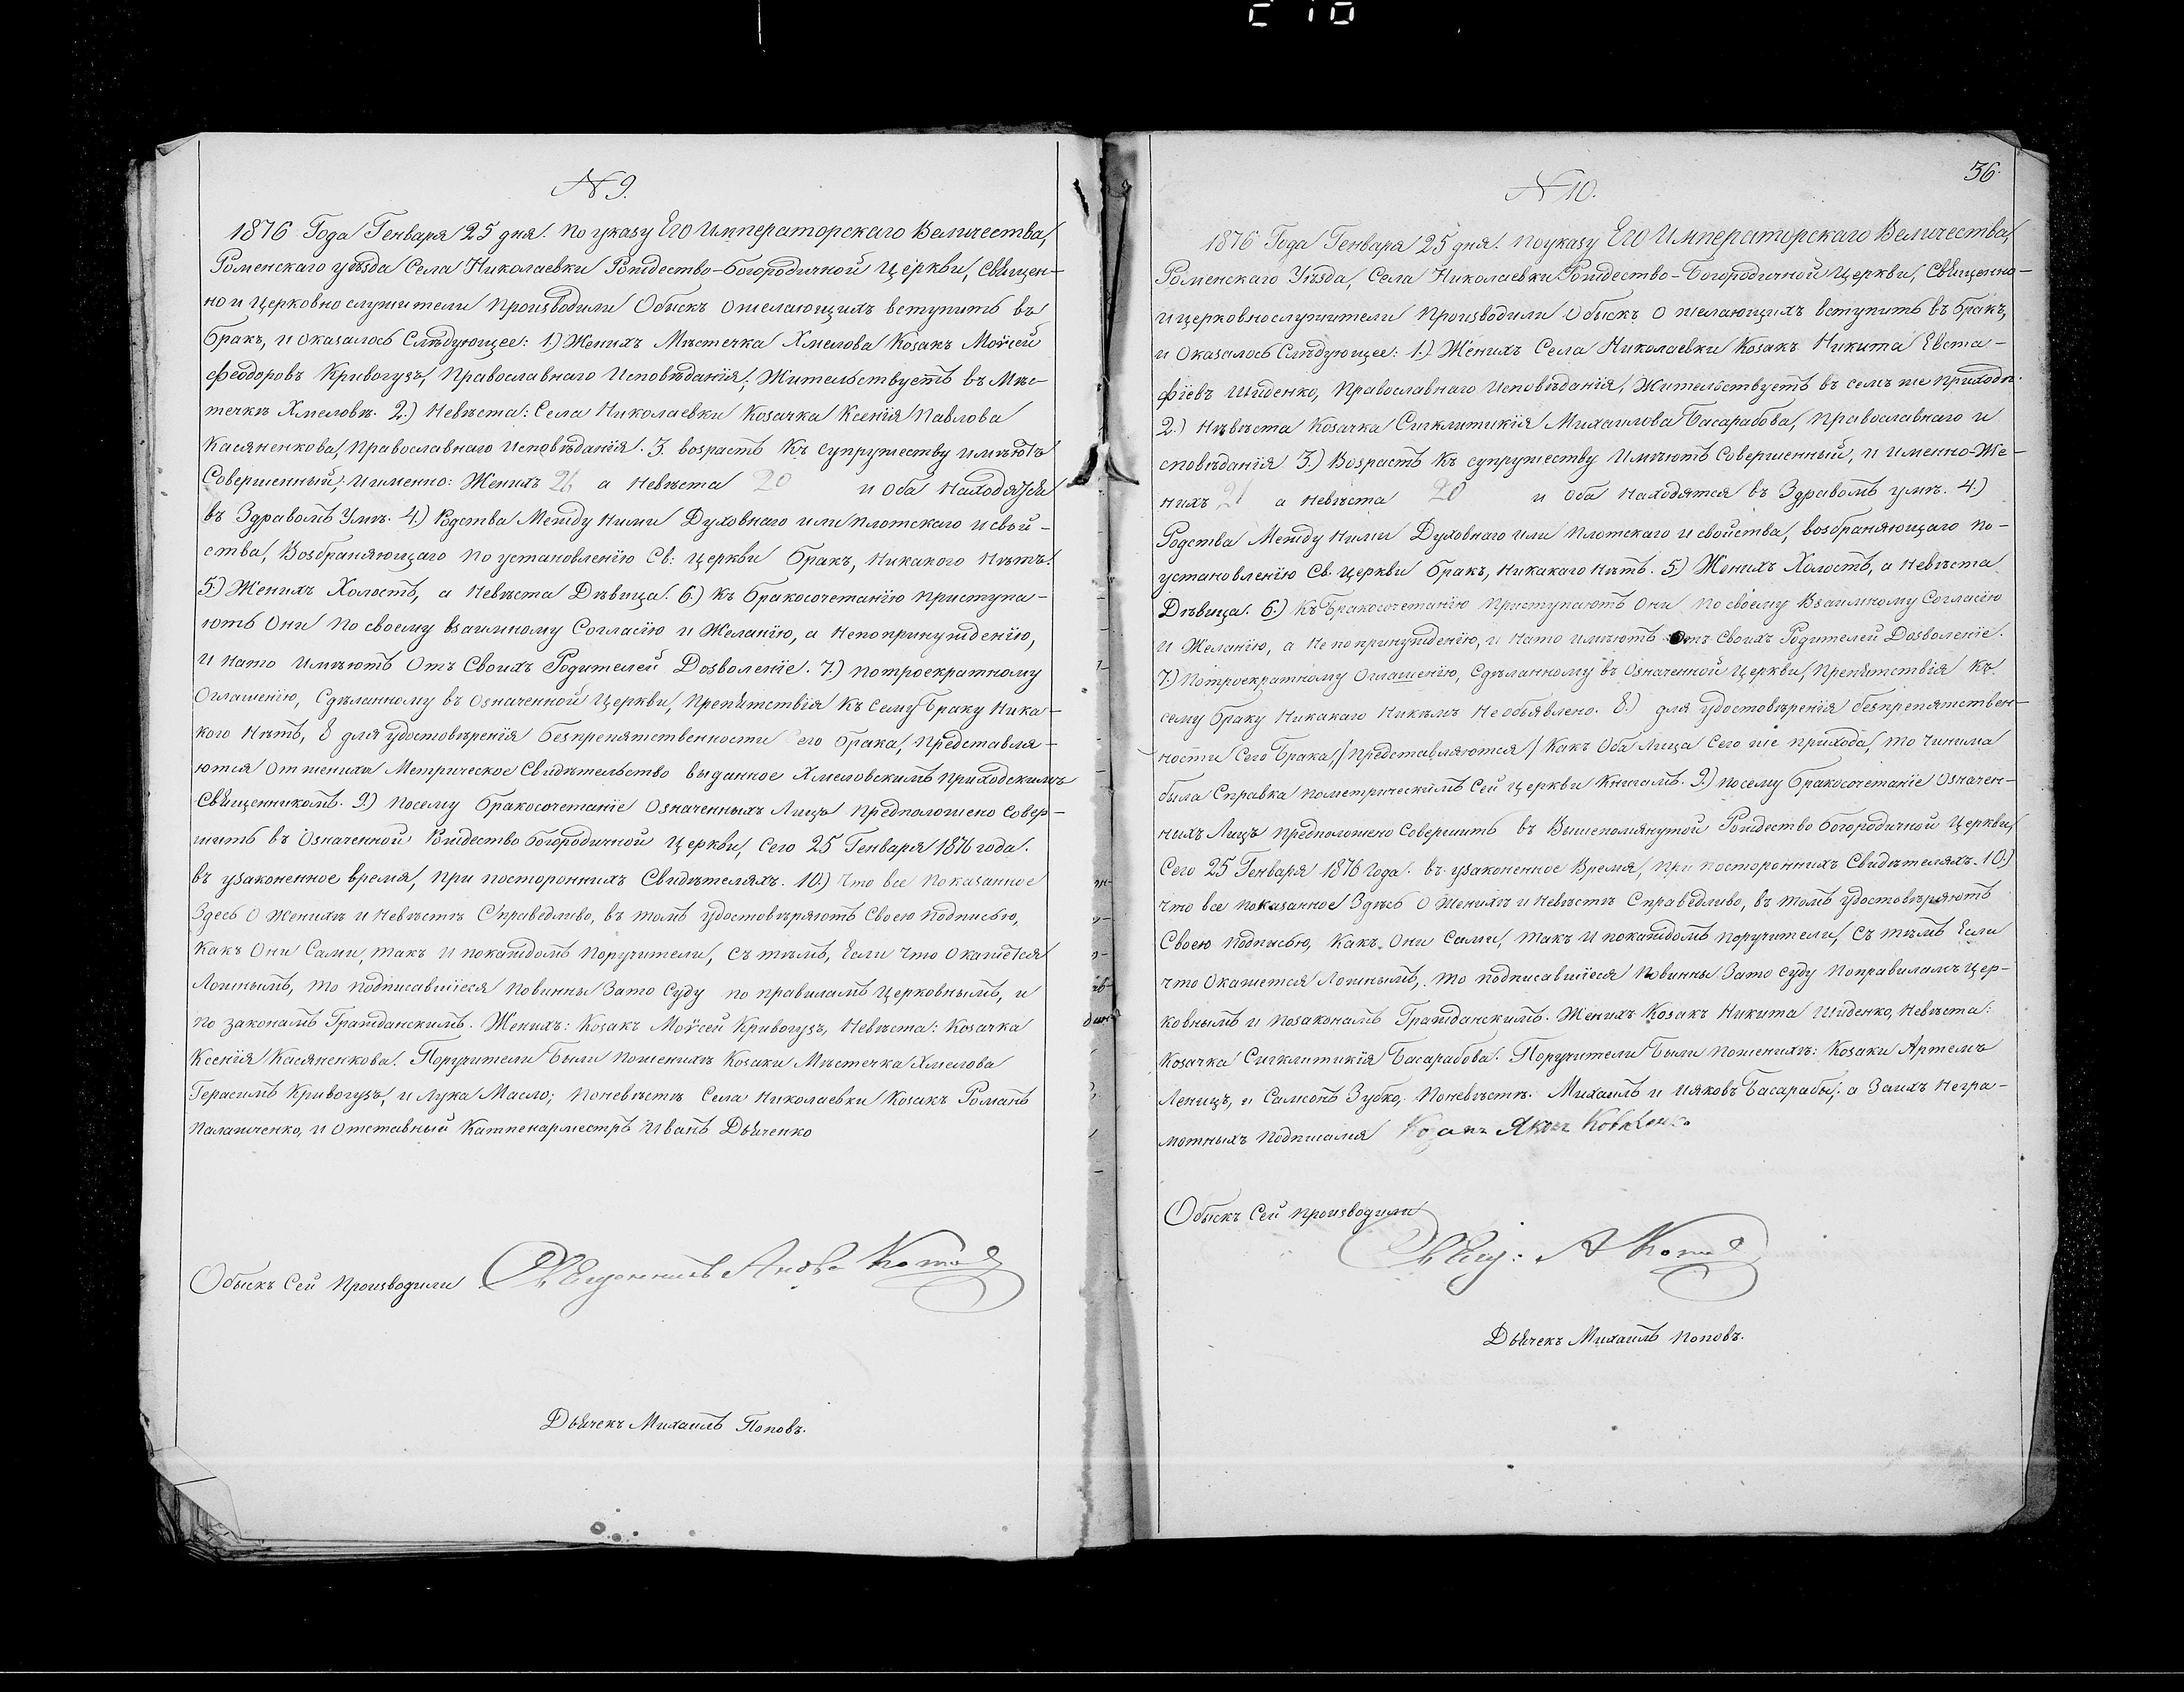 N 9.
1876 Года Генваря 25 дня. По указу Его Императорскаго Величества,
Роменскаго уѣзда Села Николаевки Рождество-Богородичной Церкви, Священ-
но и Церковно служители производили Обыскъ о желающихъ вступить въ
бракъ, и оказалось Слѣдующее: 1.) Женихъ Мѣстечка Хмелова Козакъ Моѵсей
Феодоровъ Кривогузъ, Православнаго Исповѣданія; Жительствуетъ въ Мѣс-
течкѣ Хмеловѣ. 2.) Невѣста: Села Николаевки Козачка Ксенія Павлова
Касяненкова, Православнаго Исповѣданія. 3. возрастъ Къ супружеству имѣютъ
Совершенный, и именно: Женихъ 26 а Невѣста 20 и Оба Находятся
въ Здравомъ Умѣ. 4.) Родства Между Ними Духовнаго или плотскаго и свой-
ства, Возбраняющаго по установленію Св: Церкви бракъ, Никакого Нѣтъ.
5.) Женихъ Холостъ, а Невѣста Дѣвица. 6.) Къ бракосочетанію приступа-
ютъ Они по своему взаимному Согласію и Желанію, а Непопринужденію,
и Нато имѣютъ Отъ Своихъ Родителей Дозволеніе. 7.) потроекратному
Оглашенію, Сдѣланному въ Означенной Церкви, Препятствія Къ Сему Браку Ника-
кого Нѣтъ, 8 для удостовѣренія безпрепятственности его брака, Представля-
ются От жениха Метрическое Свидѣтельство выданное Хмеловскимъ приходскимъ
Священникомъ. 9.) посему бракосочетаніе Означенныхъ Лицъ предположено Совер-
шить въ Означенной Рождество Богородичной Церкви, Сего 25 Генваря 1876 года.
въ узаконенное время, при постороннихъ Свидѣтеляхъ. 10.) Что все Показанное
Здесь О Женихѣ и Невѣстѣ Справедливо, въ томъ удостовѣряютъ Своею подписью,
Какъ Они Сами, такъ и покаждомъ Поручители, Съ тѣмъ, Если Что Окажется
Ложнымъ, то подписавшіеся повинны Зато Суду по правиламъ Церковнымъ, и
по законамъ Гражданскимъ. Женихъ: Козакъ Моѵсей Кривогузъ, Невѣста: Козачка
Ксенія Касяненкова. Поручители были пожениху Козаки Мѣстечка Хмелова
Герасимъ Кривогузъ, и Лука Масло; поневѣстѣ Села Николаевки Козакъ Романъ
Палажченко, и Отставный Каптенарместръ Иванъ Дьяченко
Обыскъ Сей Производили Священникъ
Дьячекъ Михаилъ Поповъ.
36.
N 10.
1876 Года Генваря 25 дня. По указу Его Императорскаго Величества,
Роменскаго Уѣзда, Села Николаевки Рождество-Богородичной Церкви, Священно-
и церковнослужители производили Обыскъ О желающихъ вступить въ бракъ,
и Оказалось Слѣдующее: 1.) Женихъ Села Николаевки Козакъ Никита Евста-
фіевъ Шиденко, Православнаго Исповѣданія, Жительствуетъ въ семъ же приходѣ.
2.) Нѣвѣста Козачка Сигклитикія Михаилова Басарабова, Православнаго и
сповѣданія 3.) Возрастъ Къ супружеству Имѣютъ Совершенный, и именно-Же-
нихъ 21 а Невѣста 20 и Оба Находятся въ Здравомъ умѣ. 4.)
Родства Между Ними Духовнаго или плотскаго и свойства, возбраняющаго по-
установленію Св. Церкви бракъ, Никакаго Нѣтъ. 5.) Женихъ Холостъ, а Невѣста
Дѣвица. 6.) Къ Бракосочетанію приступаютъ Они по своему Взаимному Согласію
и Желанію, а Непопринужденію, и Нато имѣютъ Отъ Своихъ Родителей Дозволеніе.
7.) Потроекратному Оглашенію, Сдѣланному въ Означенной Церкви, Препятствія Къ
сему браку Никакаго Никѣмъ Необъявлено. 8.) для удостовѣренія безпрепятствен-
ности Сего Брака, /Представляются/ Какъ Оба Лица Сего же прихода, то Чинима
была Справка пометрическимъ Сей Церкви Книгамъ. 9.) посему бракосочетаніе Означен-
ныхъ Лицъ предположено Совершить въ Вышепомянутой Рождество Богородичной Церкви,
Сего 25 Генваря 1876 Года. въ узаконенное Время, при постороннихъ Свидѣтеляхъ. 10.)
что все показанное Здѣсь О Женихѣ и Невѣстѣ Справедливо, въ томъ удостовѣряютъ
Своею подписью, Какъ Они Сами, такъ и покаждомъ поручители, Съ тѣмъ Если
что Окажется Ложнымъ, то подписавшіеся повинны Зато Суду Поправиламъ Цер-
ковнымъ и позаконамъ Гражданскимъ. Женихъ Козакъ Никита Шиденко, Невѣста:
Козачка Сигклитикія Басарабова. Поручители были пожениху: Козаки Артемъ
Леницъ, и Самсонъ Зубко, Поневѣстѣ: Михаилъ и Ияковъ Басарабы; а Заихъ Негра-
мотныхъ подписался Козакъ Яковъ
Обыскъ Сей производили
Свящ: А
Дьячекъ Михаилъ Поповъ.